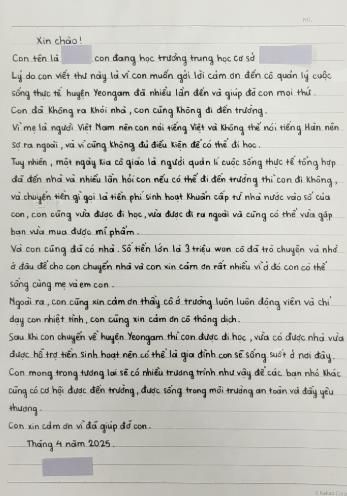 Xin chào!
Con tên là con đang học trường trung học cơ sở
Lý do con viết thư này là vì con muốn gởi lời cảm ơn đến cô quản lý cuộc
sống thực tế huyện Yeongam đã nhiều lần đến và giúp đỡ con mọi thứ.
Con đã không ra khỏi nhà, con cũng không đi đến trường.
Vì mẹ là người Việt Nam nên con nói tiếng Việt và không thể nói tiếng Hàn nên
sợ ra ngoài, và vì cũng không đủ điều kiện để có thể đi học.
Tuy nhiên, một ngày kia cô giáo là người quản lí cuộc sống thực tế tổng hợp
đã đến nhà và nhiều lần hỏi con nếu có thể đi đến trường thì con đi không,
và chuyển tiền gì gọi là tiền phí sinh hoạt khẩn cấp từ nhà nước vào số của
con, con cũng vừa được đi học, vừa được đi ra ngoài và cũng có thể vừa gặp
bạn vừa mua được mĩ phẩm.
Và con cũng đã có nhà. Số tiền lớn là 3 triệu won cô đã trò chuyện và nhờ
ở đâu để cho con chuyển nhà và con xin cảm ơn rất nhiều vì ở đó con có thể
sống cùng mẹ và em con.
Ngoài ra, con cũng xin cảm ơn thầy cô ở trường luôn luôn động viên và chỉ
dạy con nhiệt tình, con cũng xin cảm ơn cô thông dịch.
Sau khi con chuyển về huyện Yeongam thì con được đi học, vừa có được nhà vừa
được hỗ trợ tiền sinh hoạt nên có thể là gia đình con sẽ sống suốt ở nơi đây.
Con mong trong tương lai sẽ có nhiều trương trình như vậy để các bạn nhỏ khác
cũng có cơ hội được đến trường, được sống trong môi trường an toàn và đầy yêu
thương.
Con xin cảm ơn vì đã giúp đỡ con.
Tháng 4 năm 2025.